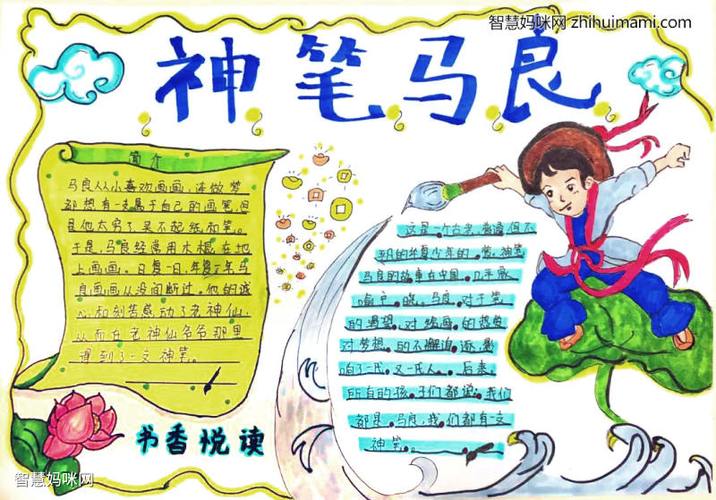 智慧妈咪网 zhihuimami.com
神笔马良
简介
马良从小喜欢画画,连做梦
都想有一支属于自己的画笔,但
是他太穷了买不起纸和笔。
于是,马良经常用木棍在地
上画画。日复一日,年复一年马
良画画从没间断过。他的诚
心和刻苦感动了老神仙,
从而在老神仙爷爷那里
得到了一支神笔。
这是一个古老,普通但不
平凡的华夏少年的梦,神笔
马良的故事在中国几乎家
喻户晓,马良对于笔
的渴望,对绘画的热爱
对梦想的不懈追逐,影
响了一代又一代人。后来
所有的孩子们都说:我们
都是马良,我们都有一支
神笔。
书香悦读
智慧妈咪网